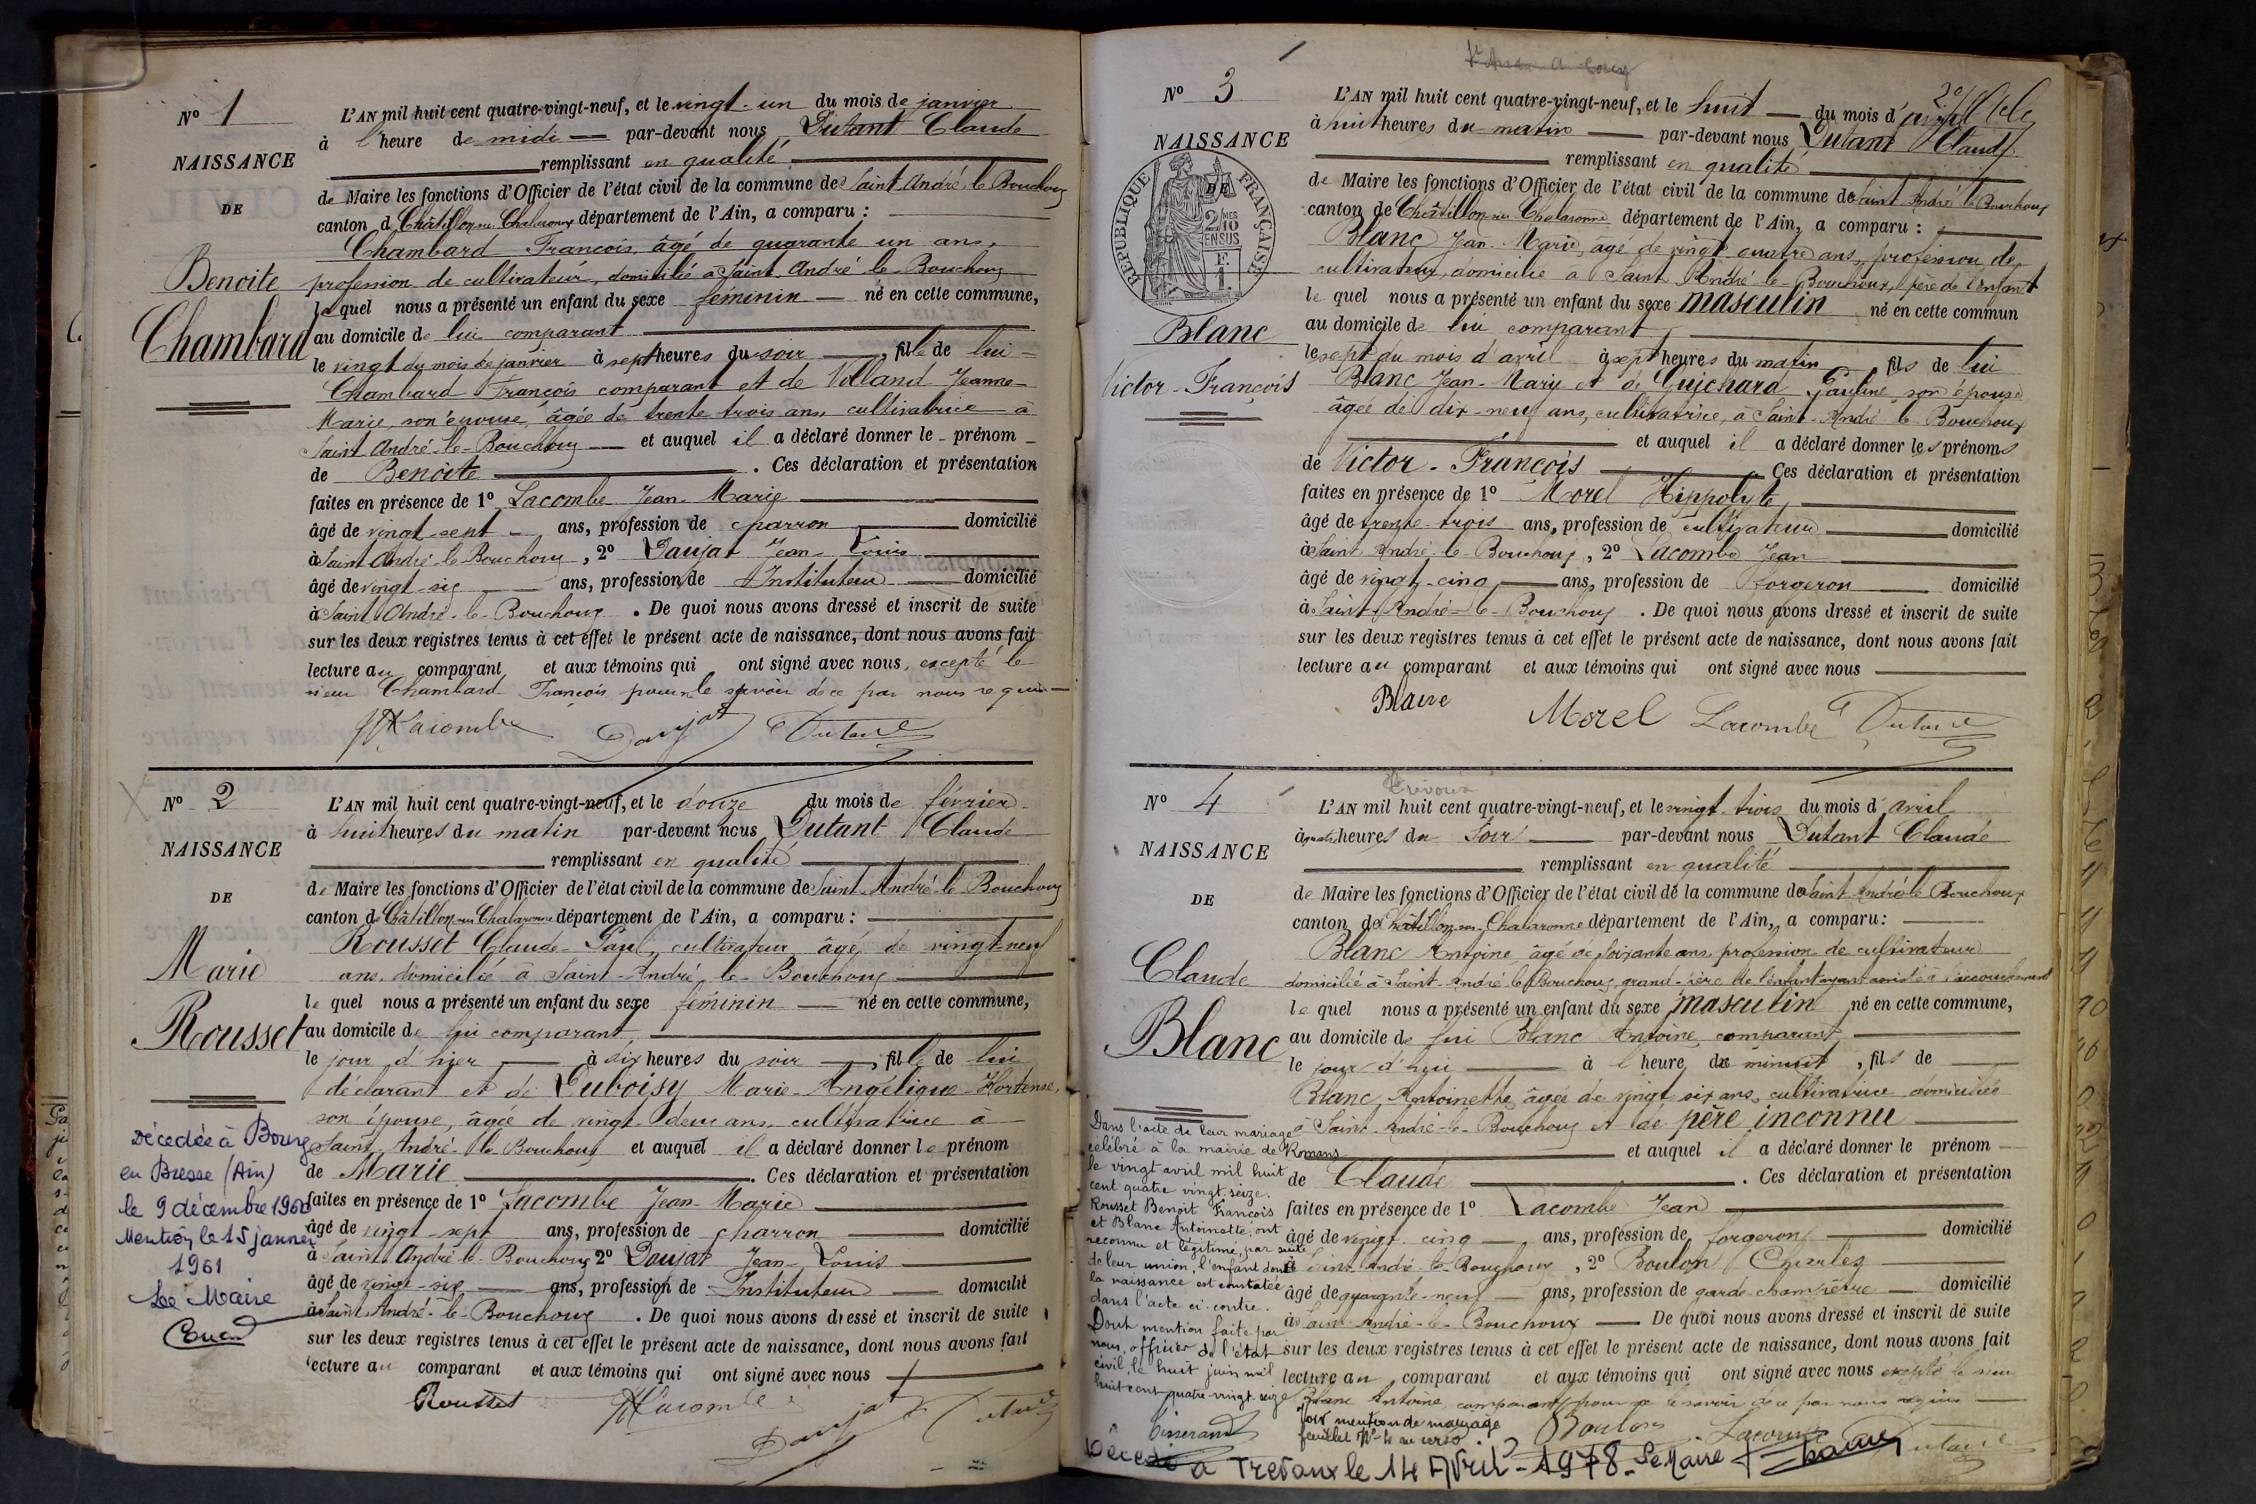 N° 1
NAISSANCE
DE
Benoite
Chambard
L'AN mil huit cent quatre-vingt-neuf, et le vingt-un du mois de janvier
à l'heure de midi par-devant nous Dutant Claude
remplissant en qualité
de Maire les fonctions d'Officier de l'état civil de la commune de Saint André le Bouchoux
canton de Châtillon-sur-Chalaronne département de l'Ain, a comparu :
Chambard François, âgé de quarante un ans,
profession de cultivateur, domicilié à Saint André le Bouchoux
lequel nous a présenté un enfant du sexe féminin né en cette commune,
au domicile de lui comparant
le vingt du mois de janvier à sept heures du soir, fille de lui
Chambard François comparant et de Volland Jeanne-
Marie, son épouse, âgée de trente trois ans, cultivatrice à
Saint André-le-Bouchoux et auquel il a déclaré donner le prénom
de Benoite. Ces déclaration et présentation
faites en présence de 1° Lacombe Jean-Marie
âgé de vingt-sept ans, profession de charron domicilié
à Saint André-le-Bouchoux, 2° Daujat Jean-Louis
âgé de vingt-six ans, profession de Instituteur domicilié
à Saint André-le-Bouchoux. De quoi nous avons dressé et inscrit de suite
sur les deux registres tenus à cet effet le présent acte de naissance, dont nous avons fait
lecture au comparant et aux témoins qui ont signé avec nous, excepté le
sieur Chambard François pour ne le savoir de ce par nous requis
Lacombe Daujat Dutant
N° 2
NAISSANCE
DE
Marie
Rousset
L'AN mil huit cent quatre-vingt-neuf, et le douze du mois de février
à huit heures du matin par-devant nous Dutant Claude
remplissant en qualité
de Maire les fonctions d'Officier de l'état civil de la commune de Saint-André-le Bouchoux
canton de Châtillon-sur-Chalaronne département de l'Ain, a comparu :
Rousset Claude-Paul, cultivateur, âgé de vingt-neuf
ans, domicilié à Saint-André-le-Bouchoux
le quel nous a présenté un enfant du sexe féminin né en cette commune,
au domicile de lui comparant
le jour d'hier à six heures du soir, fille de lui
déclarant et de Duboisy Marie-Angélique-Hortense,
son épouse, âgée de vingt-deux ans, cultivatrice à
Saint-André-le Bouchoux et auquel il a déclaré donner le prénom
de Marie. Ces déclaration et présentation
faites en présence de 1° Lacombe Jean-Marie
âgé de vingt sept ans, profession de charron domicilié
à Saint-André-le-Bouchoux 2° Daujat Jean-Louis
âgé de vingt-six ans, profession de Instituteur domicilié
à Saint-André-le-Bouchoux. De quoi nous avons dressé et inscrit de suite
sur les deux registres tenus à cet effet le présent acte de naissance, dont nous avons fait
lecture au comparant et aux témoins qui ont signé avec nous
Rousset Lacombe Daujat Dutant
Décédée à Bourg
en Bresse (Ain)
le 9 décembre 1960
Mention le 15 janvier
1961
Le Maire
N° 3
NAISSANCE
DE
RÉPUBLIQUE FRANÇAISE
2/10
EN SUS
Blanc
Victor-François
L'AN mil huit cent quatre-vingt-neuf, et le huit du mois d'avril
à huit heures du matin par-devant nous Dutant Claude
remplissant en qualité
de Maire les fonctions d'Officier de l'état civil de la commune de Saint André le Bouchoux
canton de Châtillon-sur-Chalaronne département de l'Ain, a comparu :
Blanc Jean-Marie, âgé de vingt quatre ans, profession de
cultivateur, domicilié à Saint-André-le-Bouchoux, père de l'enfant
le quel nous a présenté un enfant du sexe masculin né en cette commun
au domicile de lui comparant
le sept du mois d'avril à sept heures du matin fils de lui
Blanc Jean-Marie et de Guichard Pauline, son épouse
âgée de dix-neuf ans, cultivatrice, à Saint-André-le Bouchoux
et auquel il a déclaré donner les prénoms
de Victor-François Ces déclaration et présentation
faites en présence de 1° Morel Hippolyte
âgé de trente-trois ans, profession de cultivateur domicilié
à Saint-André-le-Bouchoux, 2° Lacombe Jean
âgé de vingt-cinq ans, profession de forgeron domicilié
à Saint-André-le-Bouchoux. De quoi nous avons dressé et inscrit de suite
sur les deux registres tenus à cet effet le présent acte de naissance, dont nous avons fait
lecture au comparant et aux témoins qui ont signé avec nous
Morel Lacombe Dutant
N° 4
NAISSANCE
DE
Claude
Blanc
Trévoux
L'AN mil huit cent quatre-vingt-neuf, et le vingt-trois du mois d'avril
à quatre heures du soir par-devant nous Dutant Claude
remplissant en qualité
de Maire les fonctions d'Officier de l'état civil de la commune de Saint André le Bouchoux
canton de Châtillon-sur-Chalaronne département de l'Ain, a comparu :
Blanc Antoine, âgé de soixante ans, profession de cultivateur
domicilié à Saint-André-le-Bouchoux, grand-père de l'enfant ayant assisté à l'accouchement
le quel nous a présenté un enfant du sexe masculin né en cette commune,
au domicile de lui Blanc Antoine, comparant
le jour d'hui à l'heure de minuit, fils de
Blanc, Antoinette, âgée de vingt six ans, cultivatrice domiciliée
à Saint-André-le-Bouchoux et de père inconnu
et auquel il a déclaré donner le prénom
de Claude. Ces déclaration et présentation
faites en présence de 1° Lacombe Jean
âgé de vingt-cinq ans, profession de forgeron domicilié
à Saint-André-le-Bouchoux, 2° Boulon Charles
âgé de quarante-neuf ans, profession de garde-champêtre domicilié
à Saint-André-le-Bouchoux De quoi nous avons dressé et inscrit de suite
sur les deux registres tenus à cet effet le présent acte de naissance, dont nous avons fait
lecture au comparant et aux témoins qui ont signé avec nous excepté le sieur
Blanc Antoine, comparant, pour ne le savoir de ce par nous requis
Boulon Lacombe Dutant
Dans l'acte de leur mariage
célébré à la mairie de Romans
le vingt avril mil huit
cent quatre vingt-seize,
Rousset Benoit François
et Blanc Antoinette, ont
reconnu et légitimé, par suite
de leur union, l'enfant dont
la naissance est constatée
dans l'acte ci-contre.
Dont mention faite par
nous, officier de l'état
civil, le huit juin mil
huit cent quatre-vingt-seize
Tisserand
Voir mention de mariage
feuillet N° 4 au verso
Décédé à Trévoux le 14 Avril 1978. Le Maire